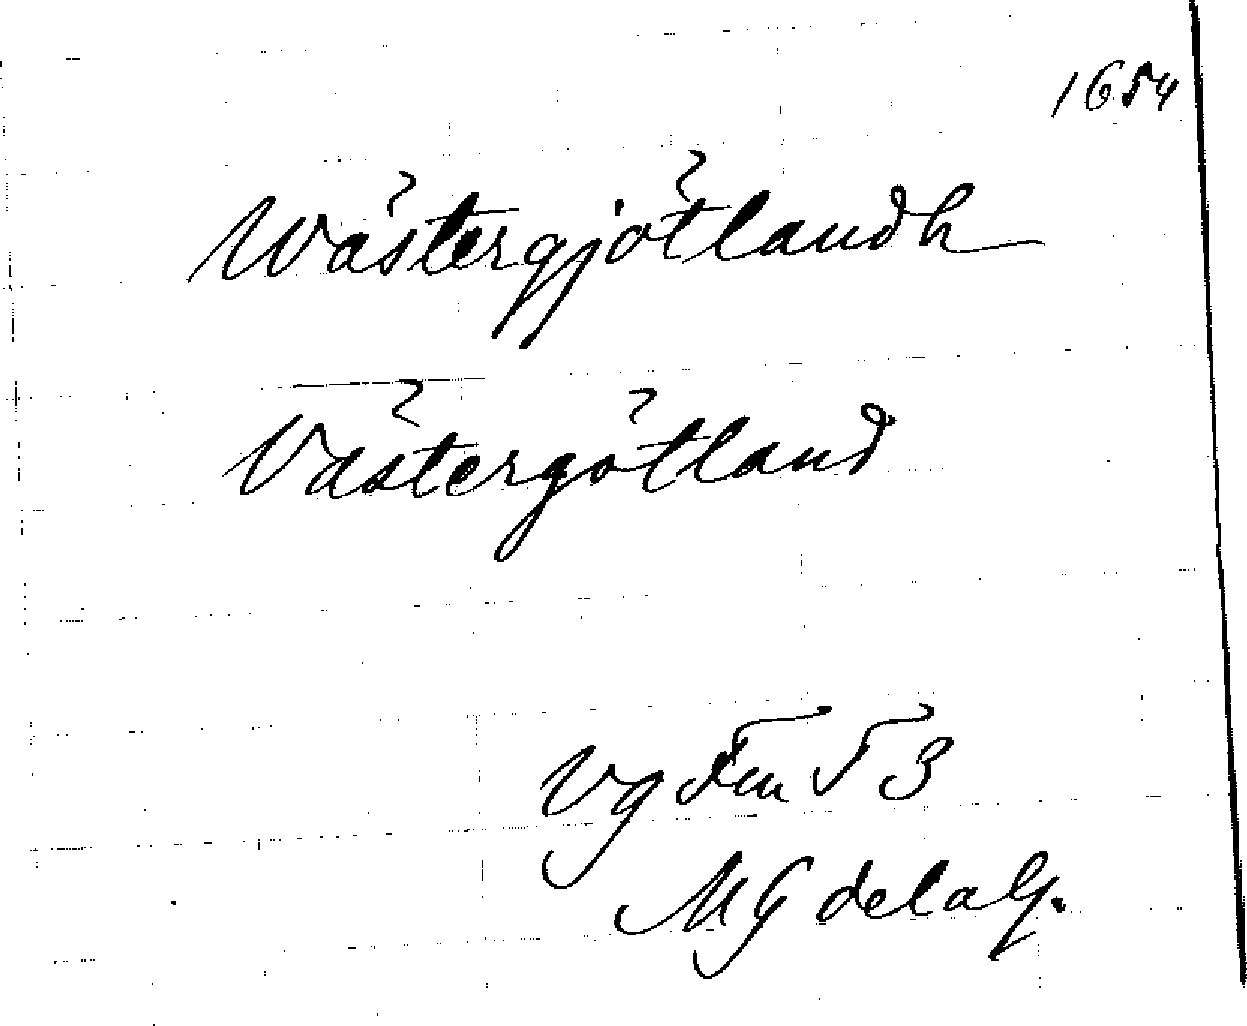 1654
Wästergjötlandh
Västergötland
Vg Fen 53
M G de la G.